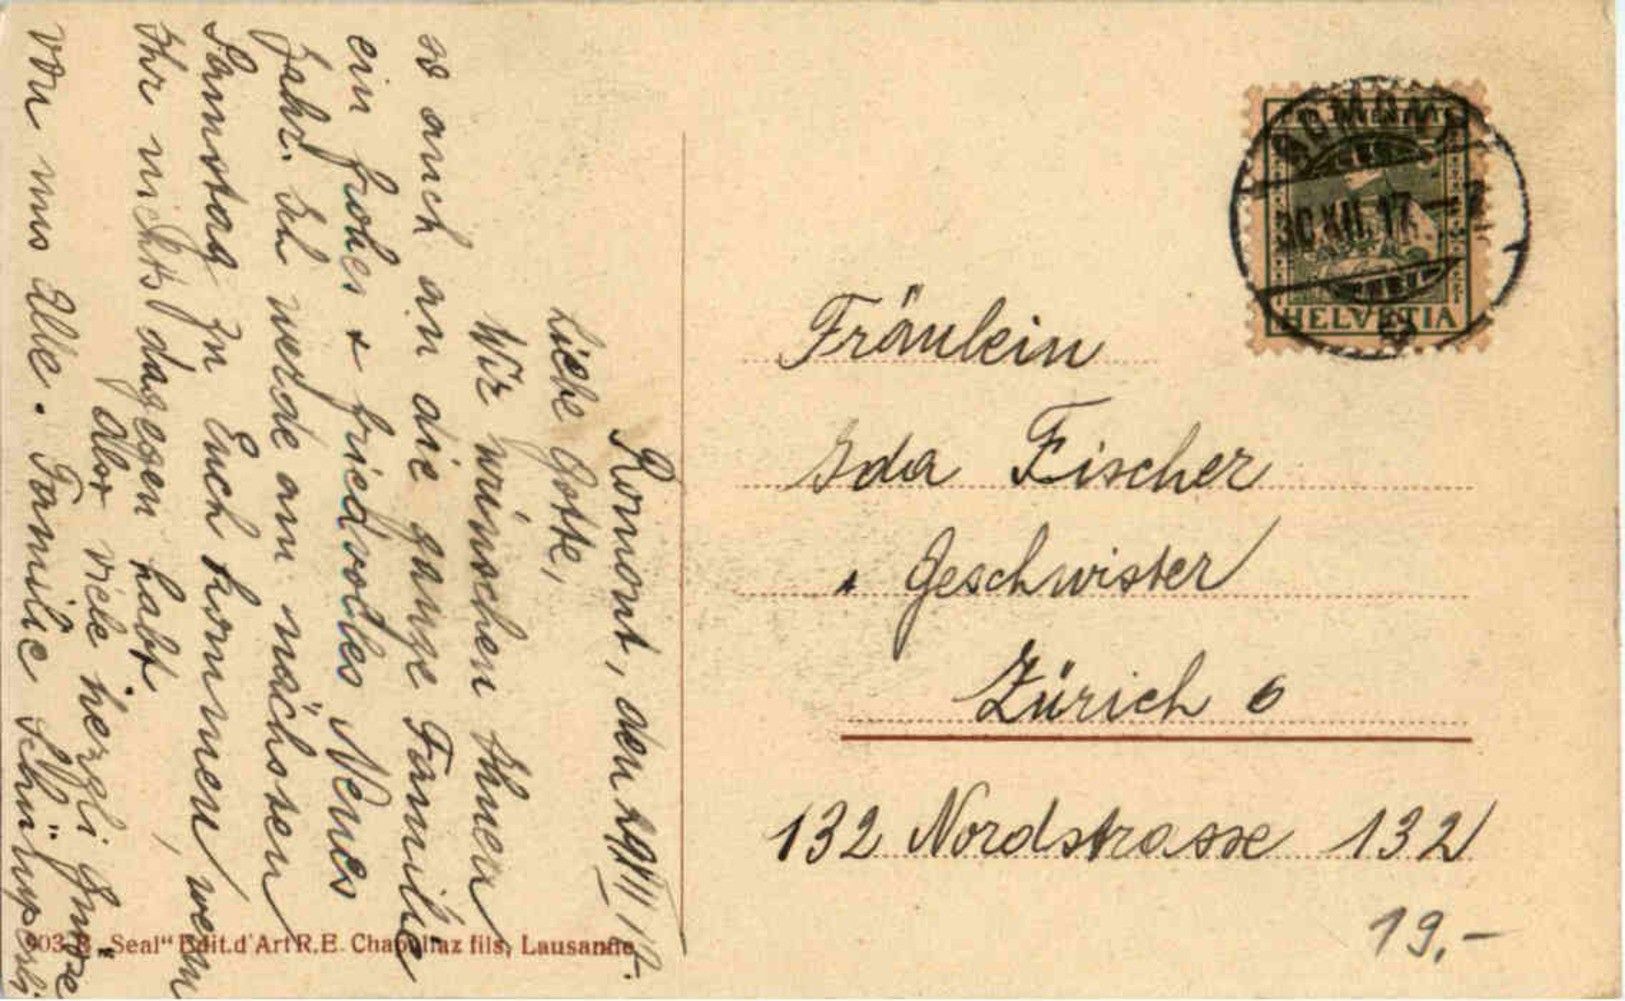 Romont, den 29/XII 17.
Liebe Gotte,
Wir wünschen Ihnen
so auch an die ganze Familie
ein frohes & friedvolles Neues
Jahr. Ich werde am nächsten
Samstag zu Euch kommen, wenn
Ihr nichts dagegen habt.
Aber viele herzli Grüsse
von uns Alle. Familie
903 B „Seal“ Edit. d'Art R.E. Chapallaz fils, Lausanne.
PRO JUVENTUTE
ROMONT
30.XII.17.
HELVETIA
Fräulein
Ida Fischer
Geschwister
Zürich 6
132 Nordstrasse 132
19.-